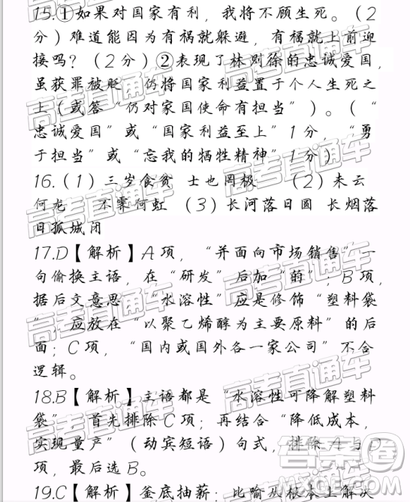 15.①如果对国家有利，我将不顾生死。（2
分）难道能因为有祸就躲避，有福就上前迎
接吗？（2分）②表现了林则徐的忠诚爱国，
虽获罪被贬，仍将国家利益置于个人生死之
上（或答“仍对国家使命有担当”）。（“
忠诚爱国”或“国家利益至上”1分，“勇
于担当”或“忘我的牺牲精神”1分）
16.（1）三岁食贫 士也罔极 （2）未云
何龙 不霁何虹 （3）长河落日圆 长烟落
日孤城闭
17.D【解析】A项，“并面向市场销售”一
句偷换主语，在“研发”后加“的”；B项，
据后文意思，“水溶性”应是修饰“塑料袋
”，应放在“以聚乙烯醇为主要原料”的后
面；C项，“国内或国外各一家公司”不合
逻辑。
18.B【解析】主语都是“水溶性可降解塑料
袋”，首先排除C项；再结合“降低成本，
实现量产”（动宾短语）句式，排除A与D
项，最后选B。
19.C【解析】釜底抽薪：比喻从根本上解决
高考直通车